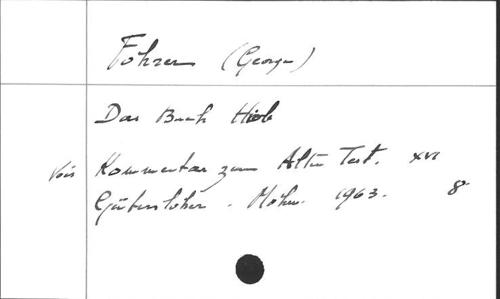 Fohrer (Georg)
Das Buch Hiob
Vois Kommentar zum Alten Test. XVI
Gütersloher. Mohn. 1963. 8°